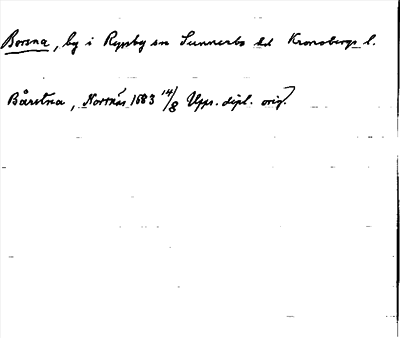 Borsna, by i Ryssby sn Sunnerbo hd Kronobergs l.
Bårstna, Norrnäs 1683 14/8 Upps. dipl. orig.